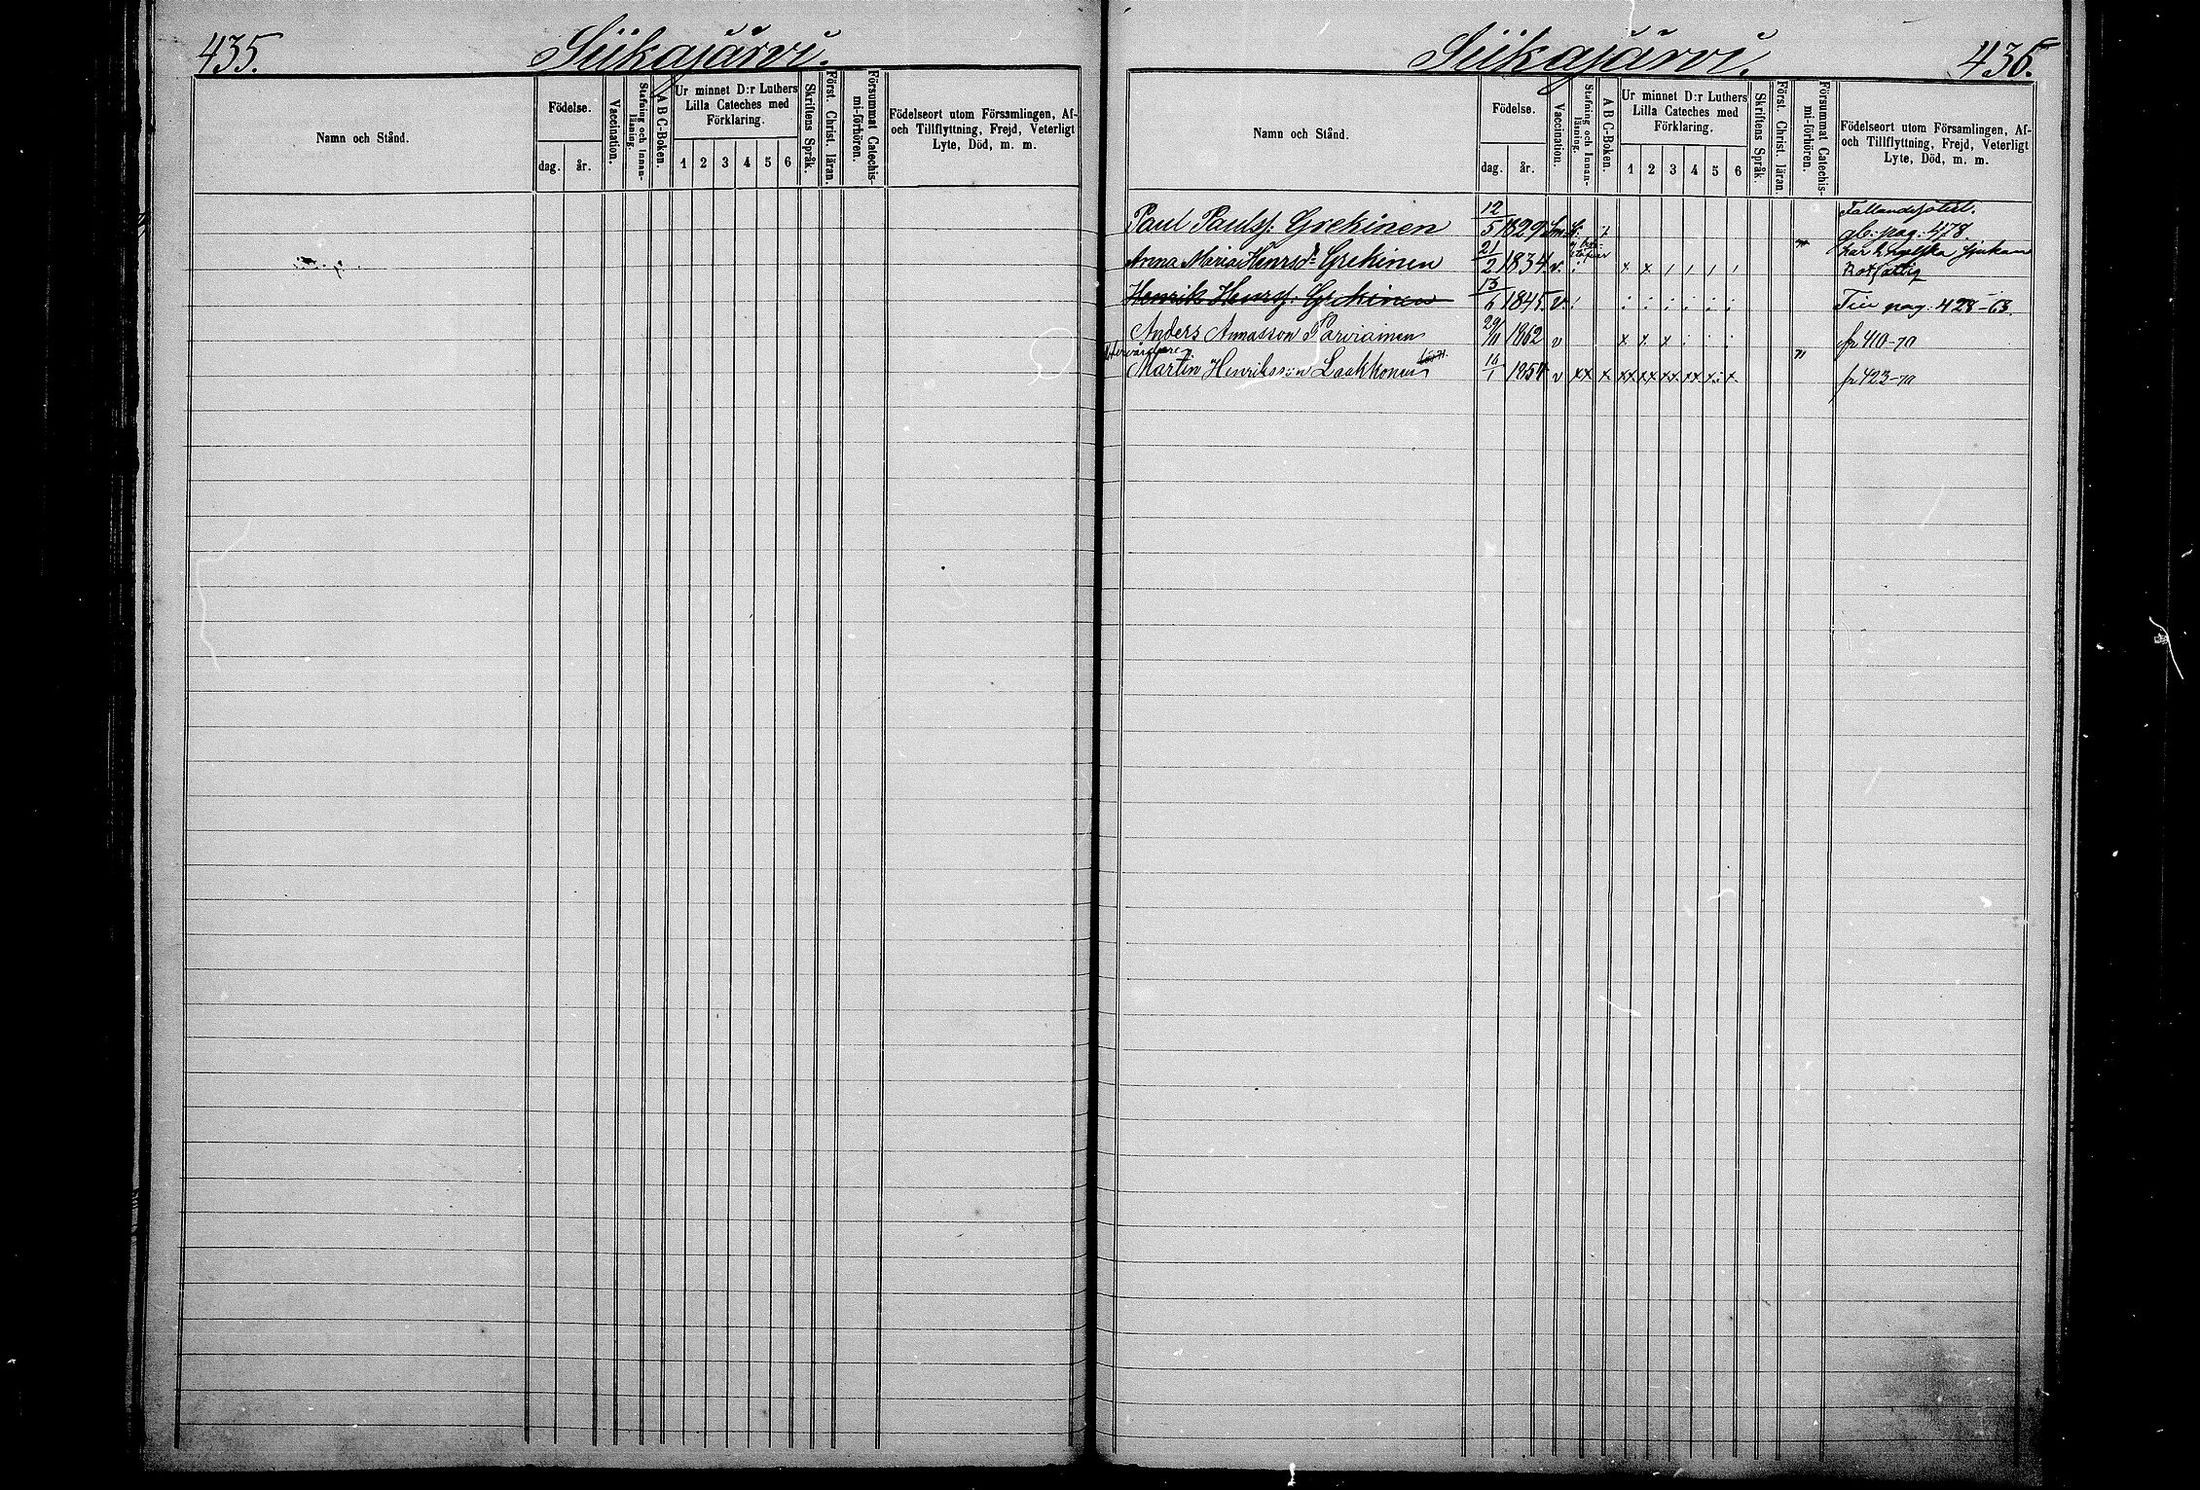 435. Siikajärvi.
Namn och Stånd.
Födelse.
dag. år.
Vaccination.
Stafning och Innanläsning.
A B C-Boken.
Ur minnet D:r Luthers
Lilla Cateches med
Förklaring.
1 2 3 4 5 6
Skriftens Språk.
Först. Christ. läran.
Försummat Catechismi-förhören.
Födelseort utom Församlingen, Af-
och Tillflyttning, Frejd, Veterligt
Lyte, Död, m. m.
Siikajärvi. 436.
Namn och Stånd.
Födelse.
dag. år.
Vaccination.
Stafning och Innanläsning.
A B C-Boken.
Ur minnet D:r Luthers
Lilla Cateches med
Förklaring.
1 2 3 4 5 6
Skriftens Språk.
Först. Christ. läran.
Försummat Catechismi-förhören.
Födelseort utom Församlingen, Af-
och Tillflyttning, Frejd, Veterligt
Lyte, Död, m. m.
Paul Paulss: Grekinen 12/5 1829 pag: 478
Anna Maria Henrsd:r Grekinen 21/2 1834 v. x x / / / /
Rotfattig
Henrik Henrss: Grekinen 13/6 1845 v. Till pag. 428-63.
Anders Annasson Parviainen 29/11 1862 v x x x fr 410-70
Martin Henriksson Laakkonen 10/1 1857 v xx x xx xx xx xx x fr 423-70